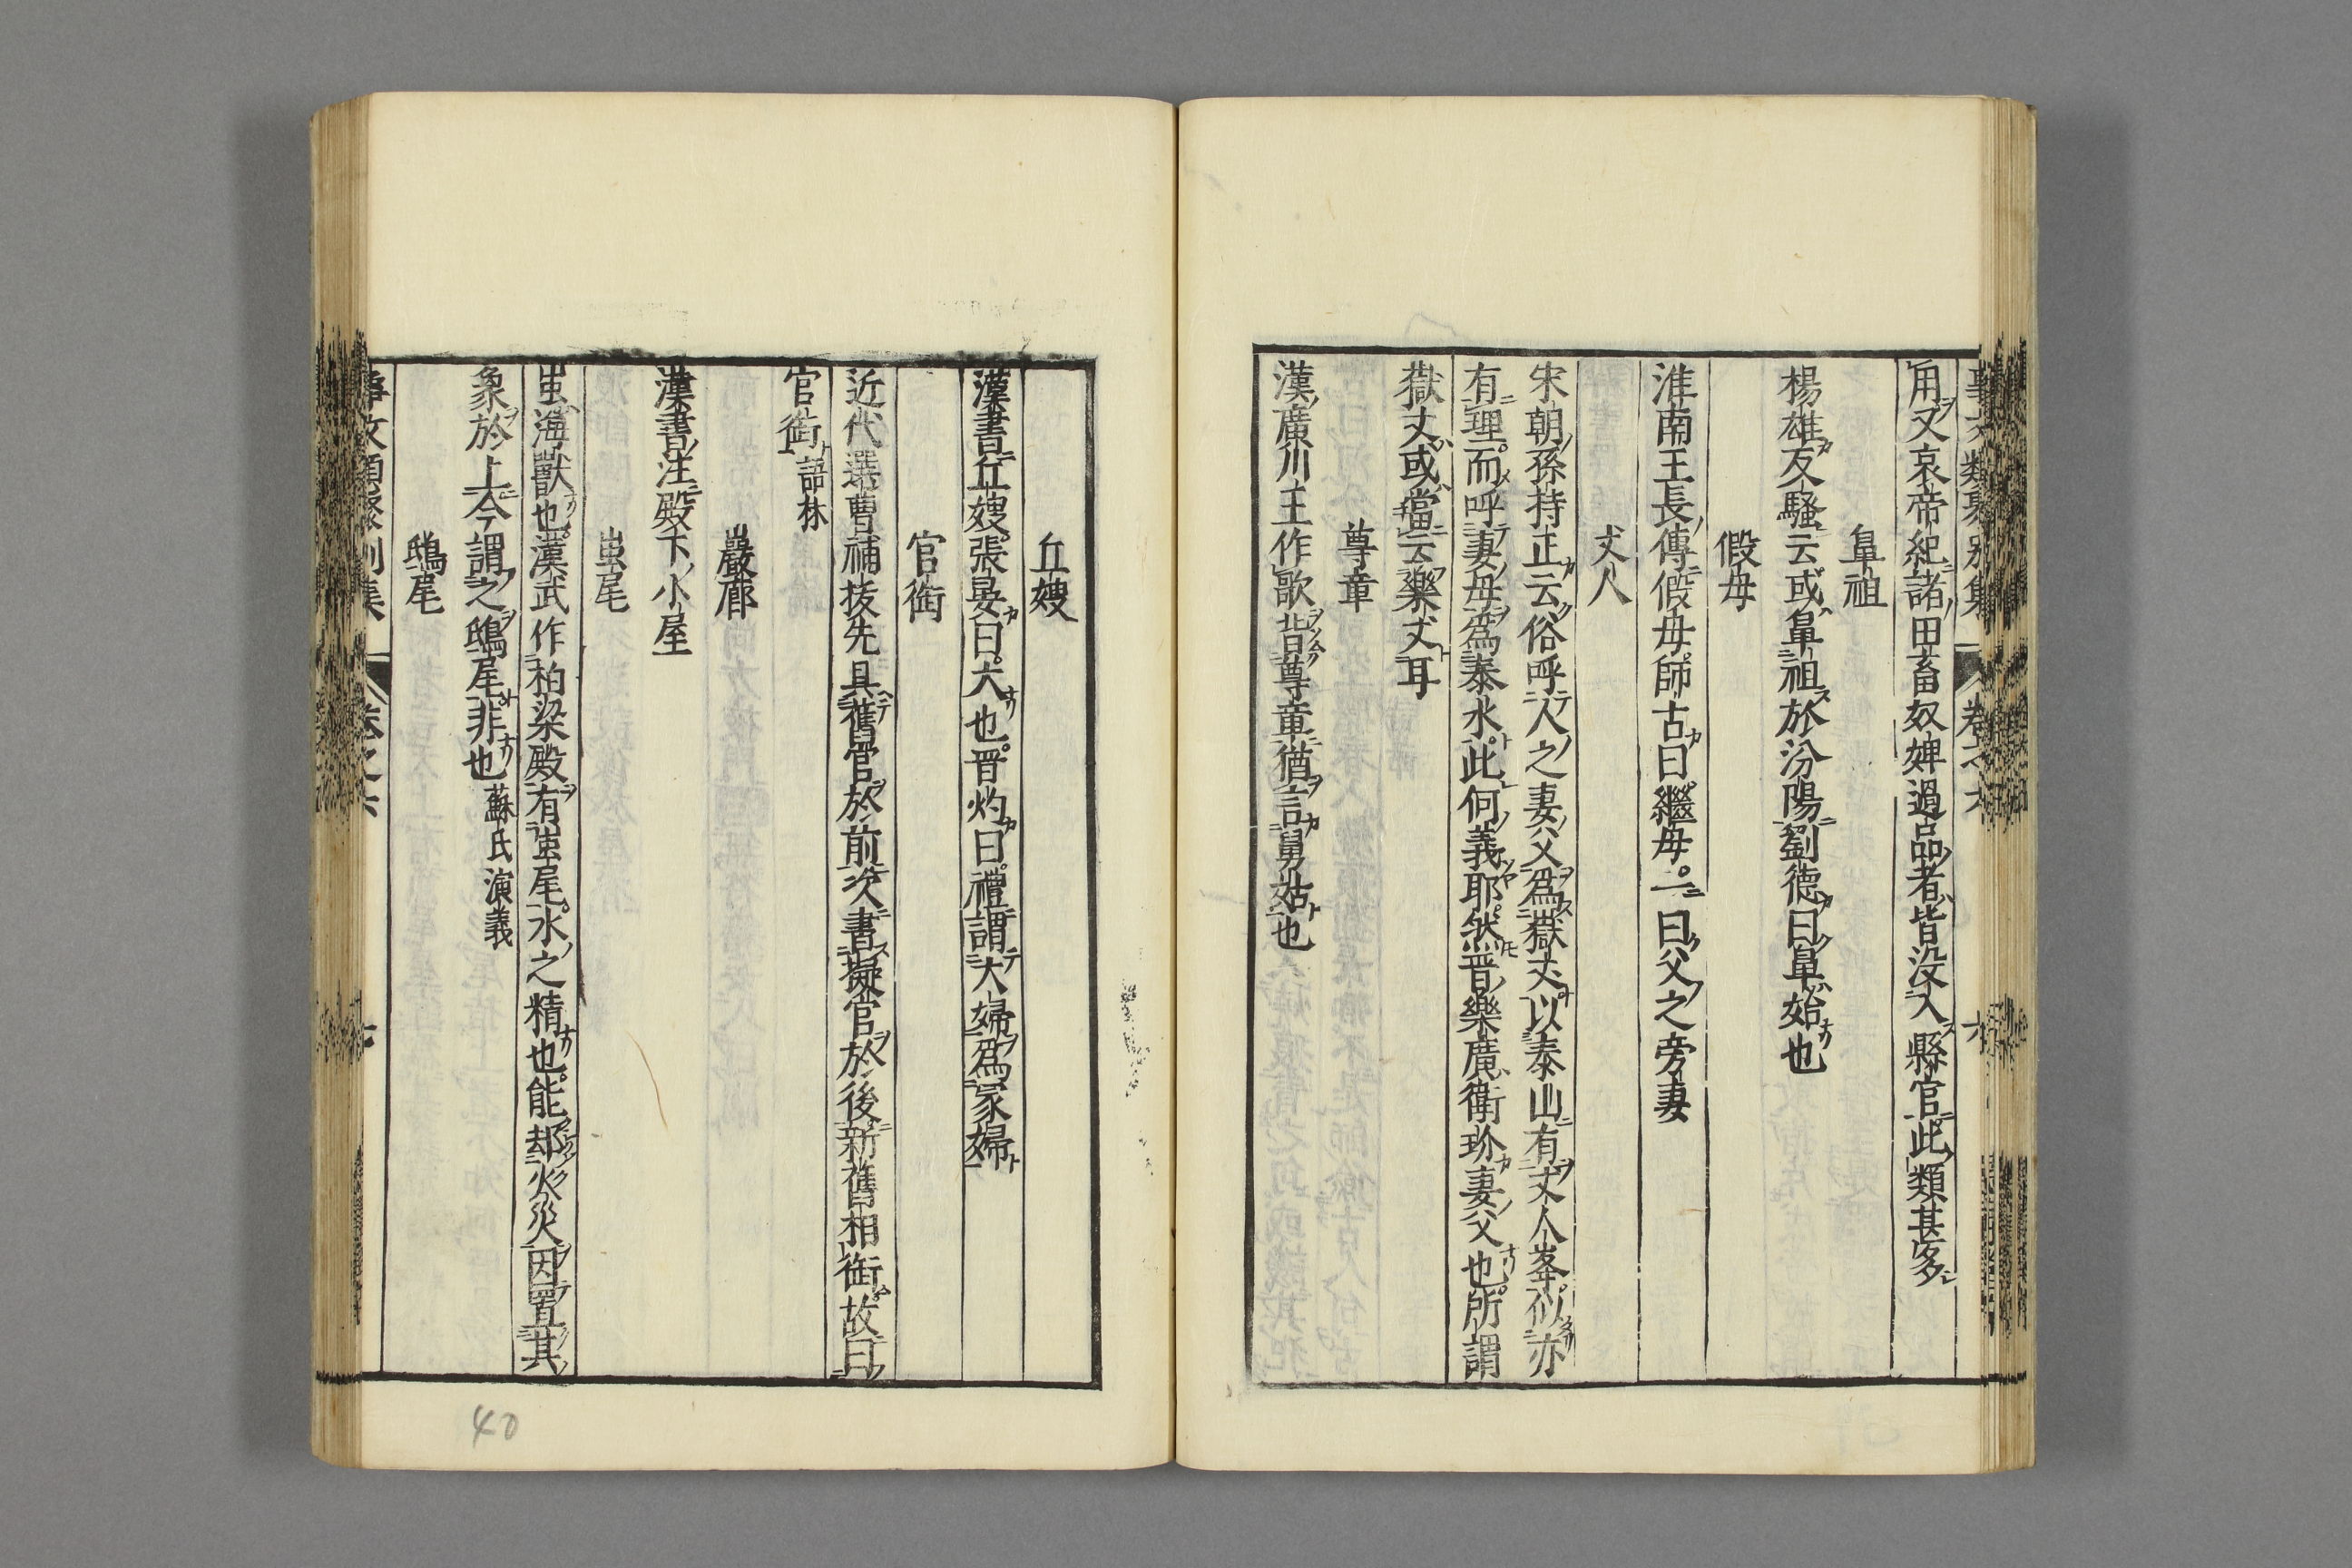 用又哀帝紀諸田畜奴婢過品者皆沒入縣官此類甚多
鼻祖
楊雄反騷云或鼻祖於汾陽劉德曰鼻始也
假母
淮南王長傳假母師古曰繼母。一曰父之旁妻
丈人
宋朝孫持正云俗呼人之妻父為嶽丈以泰山有丈人峯似亦
有理而呼妻母為泰水此何義耶然晉樂廣衛玠妻父也所謂
嶽丈或當云樂丈耳
尊章
漢廣川王作歌背尊章猶言舅姑也
丘嫂
漢書丘嫂張晏曰大也。晉灼曰禮謂大婦為冢婦
官銜
近代選曹補授先具舊官於前次書擬官於後新舊相銜故曰
官銜 語林
巖廊
漢書注殿下小屋
蚩尾
蚩海獸也。漢武作柏梁殿有蚩尾。水之精也。能却火災因置其
象於上今謂之鴟尾非也 蘇氏演義
鴟尾